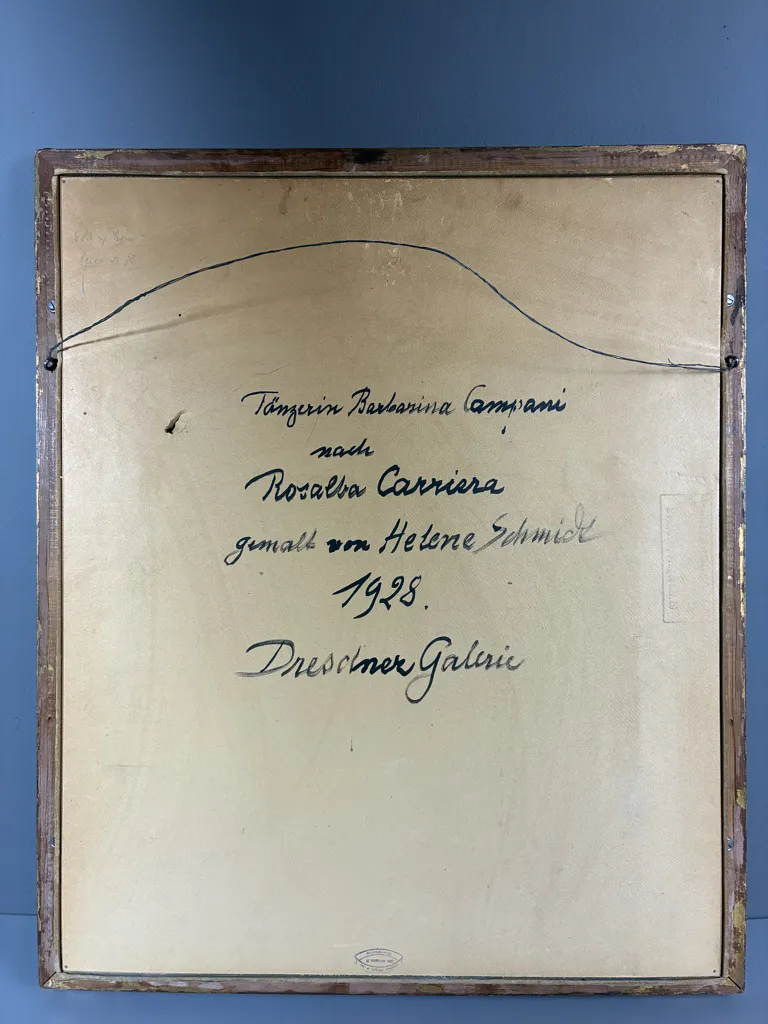 Tänzerin Barbarina Campani
nach
Rosalba Carriera
gemalt von Helene Schmidt
1928.
Dresdner Galerie